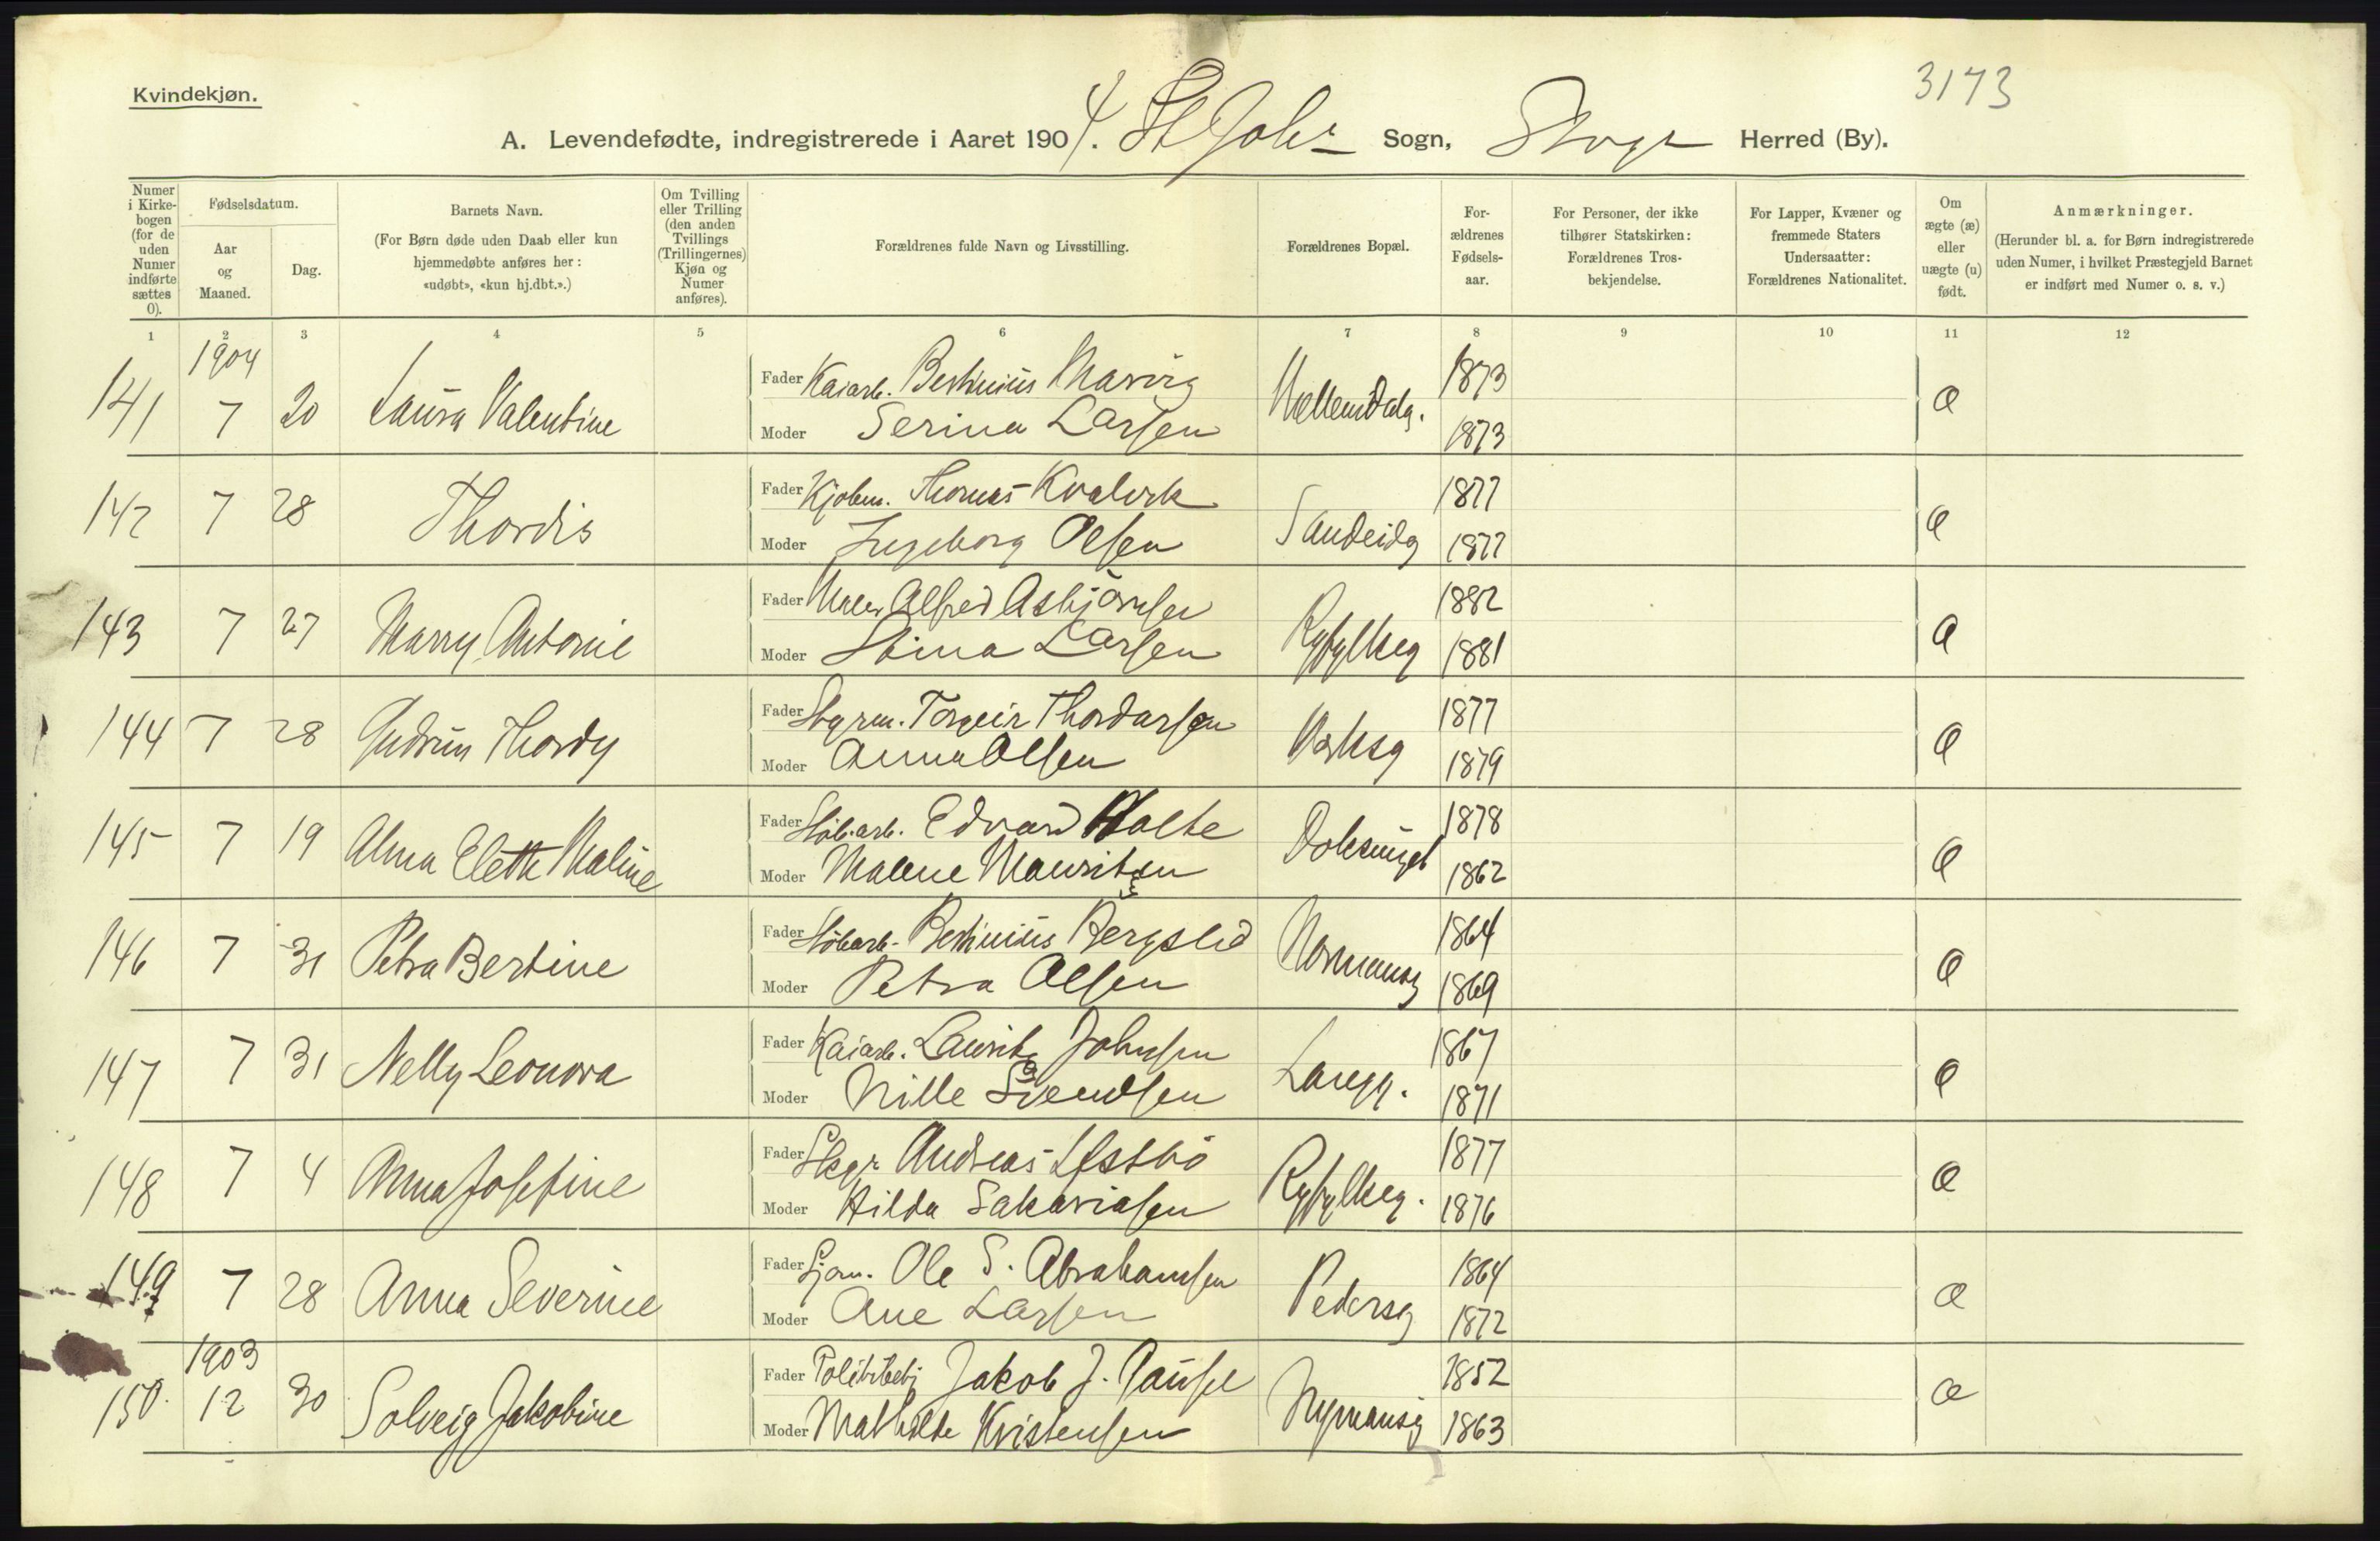 Kvindekjøn.
3173
A. Levendefødte, indregistrerede i Aaret 1904. St Joh Sogn, Stvgr Herred (By).
Numer i Kirkebogen (for de uden Numer indførte sættes 0).
Fødselsdatum.
Aar og Maaned.
Dag.
Barnets Navn.
(For Børn døde uden Daab eller kun hjemmedøbte anføres her: «udøbt», «kun hj.dbt.».)
Om Tvilling eller Trilling (den anden Tvillings (Trillingernes) Kjøn og Numer anføres).
Forældrenes fulde Navn og Livsstilling.
Forældrenes Bopæl.
Forældrenes Fødselsaar.
For Personer, der ikke tilhører Statskirken: Forældrenes Trosbekjendelse.
For Lapper, Kvæner og fremmede Staters Undersaatter: Forældrenes Nationalitet.
Om ægte (æ) eller uægte (u) født.
Anmærkninger.
(Herunder bl. a. for Børn indregistrerede uden Numer, i hvilket Præstegjeld Barnet er indført med Numer o. s. v.)
1 2 3 4 5 6 7 8 9 10 11 12
1904
141 7 20 Laura Valentine Fader Kaiarb. Bertinius Mavrig Mellemdalg. 1873 æ
Moder Serina Larsen 1873
142 7 28 Thordis Fader Kjøbm. Thomas Kvalvik Sandeidg 1877 æ
Moder Ingeborg Olsen 1877
143 7 27 Marry Antonie Fader Maler Alfred Asbjörnsen Ryfylkeg 1882 æ
Moder Stina Larsen 1881
144 7 28 Gudrun Thordy Fader Styrm. Torgeir Thordarsen Vaksg 1877 æ
Moder Anna Olsen 1879
145 7 19 Alma Elette Maline Fader Støb.arb. Edvard Holte 1878 æ
Moder Malene Mauritzen 1862
146 7 31 Petra Bertine Fader Støbarb. Bertinius Bergslid Normansg 1864 æ
Moder Petra Olsen 1869
147 7 31 Nelly Leonora Fader Kaiarb. Lauritz Johnsen Langg. 1867 æ
Moder Nille Svendsen 1871
148 7 4 Anna Josefine Fader Skgr Andreas Ryfylkeg. 1877 æ
Moder Hilda Sakariasen 1876
149 7 28 Anna Severine Fader Sjøm. Ole S. Abrahamsen Pedersg 1864 æ
Moder Ane Larsen 1872
1903
150. 12 30 Solveig Jakobine Fader Politibetj Jakob J. Gausel Nymansg 1852 æ
Moder Mathilde Kristensen 1863